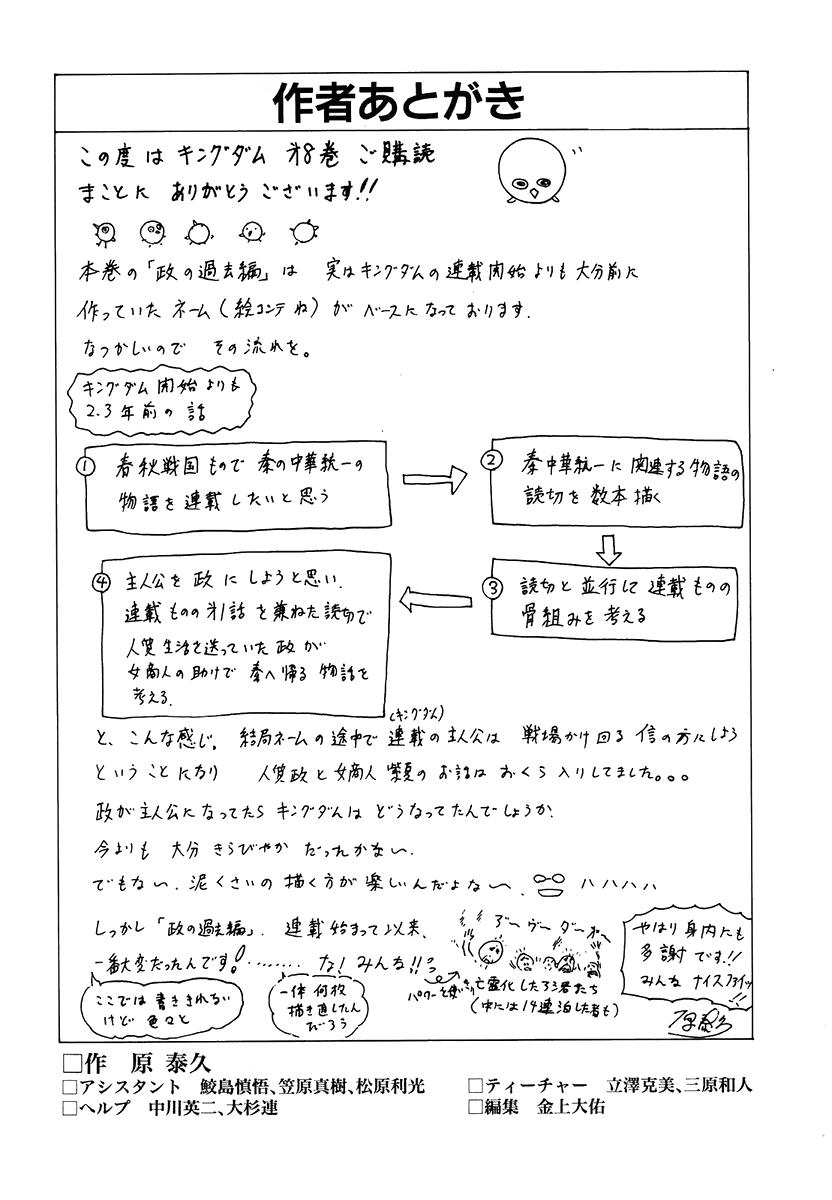 作者あとがき
この度は キングダム 才8巻 ご購読
まことに ありがとうございます!!
本巻の「政の過去編」は 実はキングダムの連載開始よりも大分前に
作っていた ネーム(絵コンテね)が ベースになっております.
なつかしいので その流れを。
キングダム開始よりも
2.3年前の話
① 春秋戦国もので 秦の中華統一の
物語を連載したいと思う
② 秦中華統一に関連する物語の
読切を数本描く
③ 読切と並行して連載ものの
骨組みを考える
④ 主人公を 政 にしようと思い.
連載ものの才1話を兼ねた読切で
人質生活を送っていた政が
女商人の助けで 秦へ帰る 物語を
考える.
(キングダム)
と、こんな感じ. 結局ネームの途中で 連載の主人公は 戦場かけ回る 信の方にしよう
ということになり 人質政と女商人 紫夏のお話は おくら入りしてました。。。
政が主人公になってたら キングダムは どうなってたんでしょうか.
今よりも 大分 きらびやか だったかなぃ.
でもなぃ. 泥くさいの 描く方が 楽しいんだよなぁ~. ハハハハ
しっかし「政の過去編」. 連載始まって以来、
一番大変だったんです!········ な! みんな!!
ここでは 書ききれない
けど 色々と
一体 何枚
描き直したん
だろう
アーヴーダーオー
パワーを使いきり亡霊化したろう者たち
(中には14連泊した者も)
やはり身内にも
多謝です!!
みんな ナイスファイッ!!
原泰久
□作 原 泰久
□アシスタント 鮫島慎悟、笠原真樹、松原利光
□ヘルプ 中川英二、大杉連
□ティーチャー 立澤克美、三原和人
□編集 金上大佑